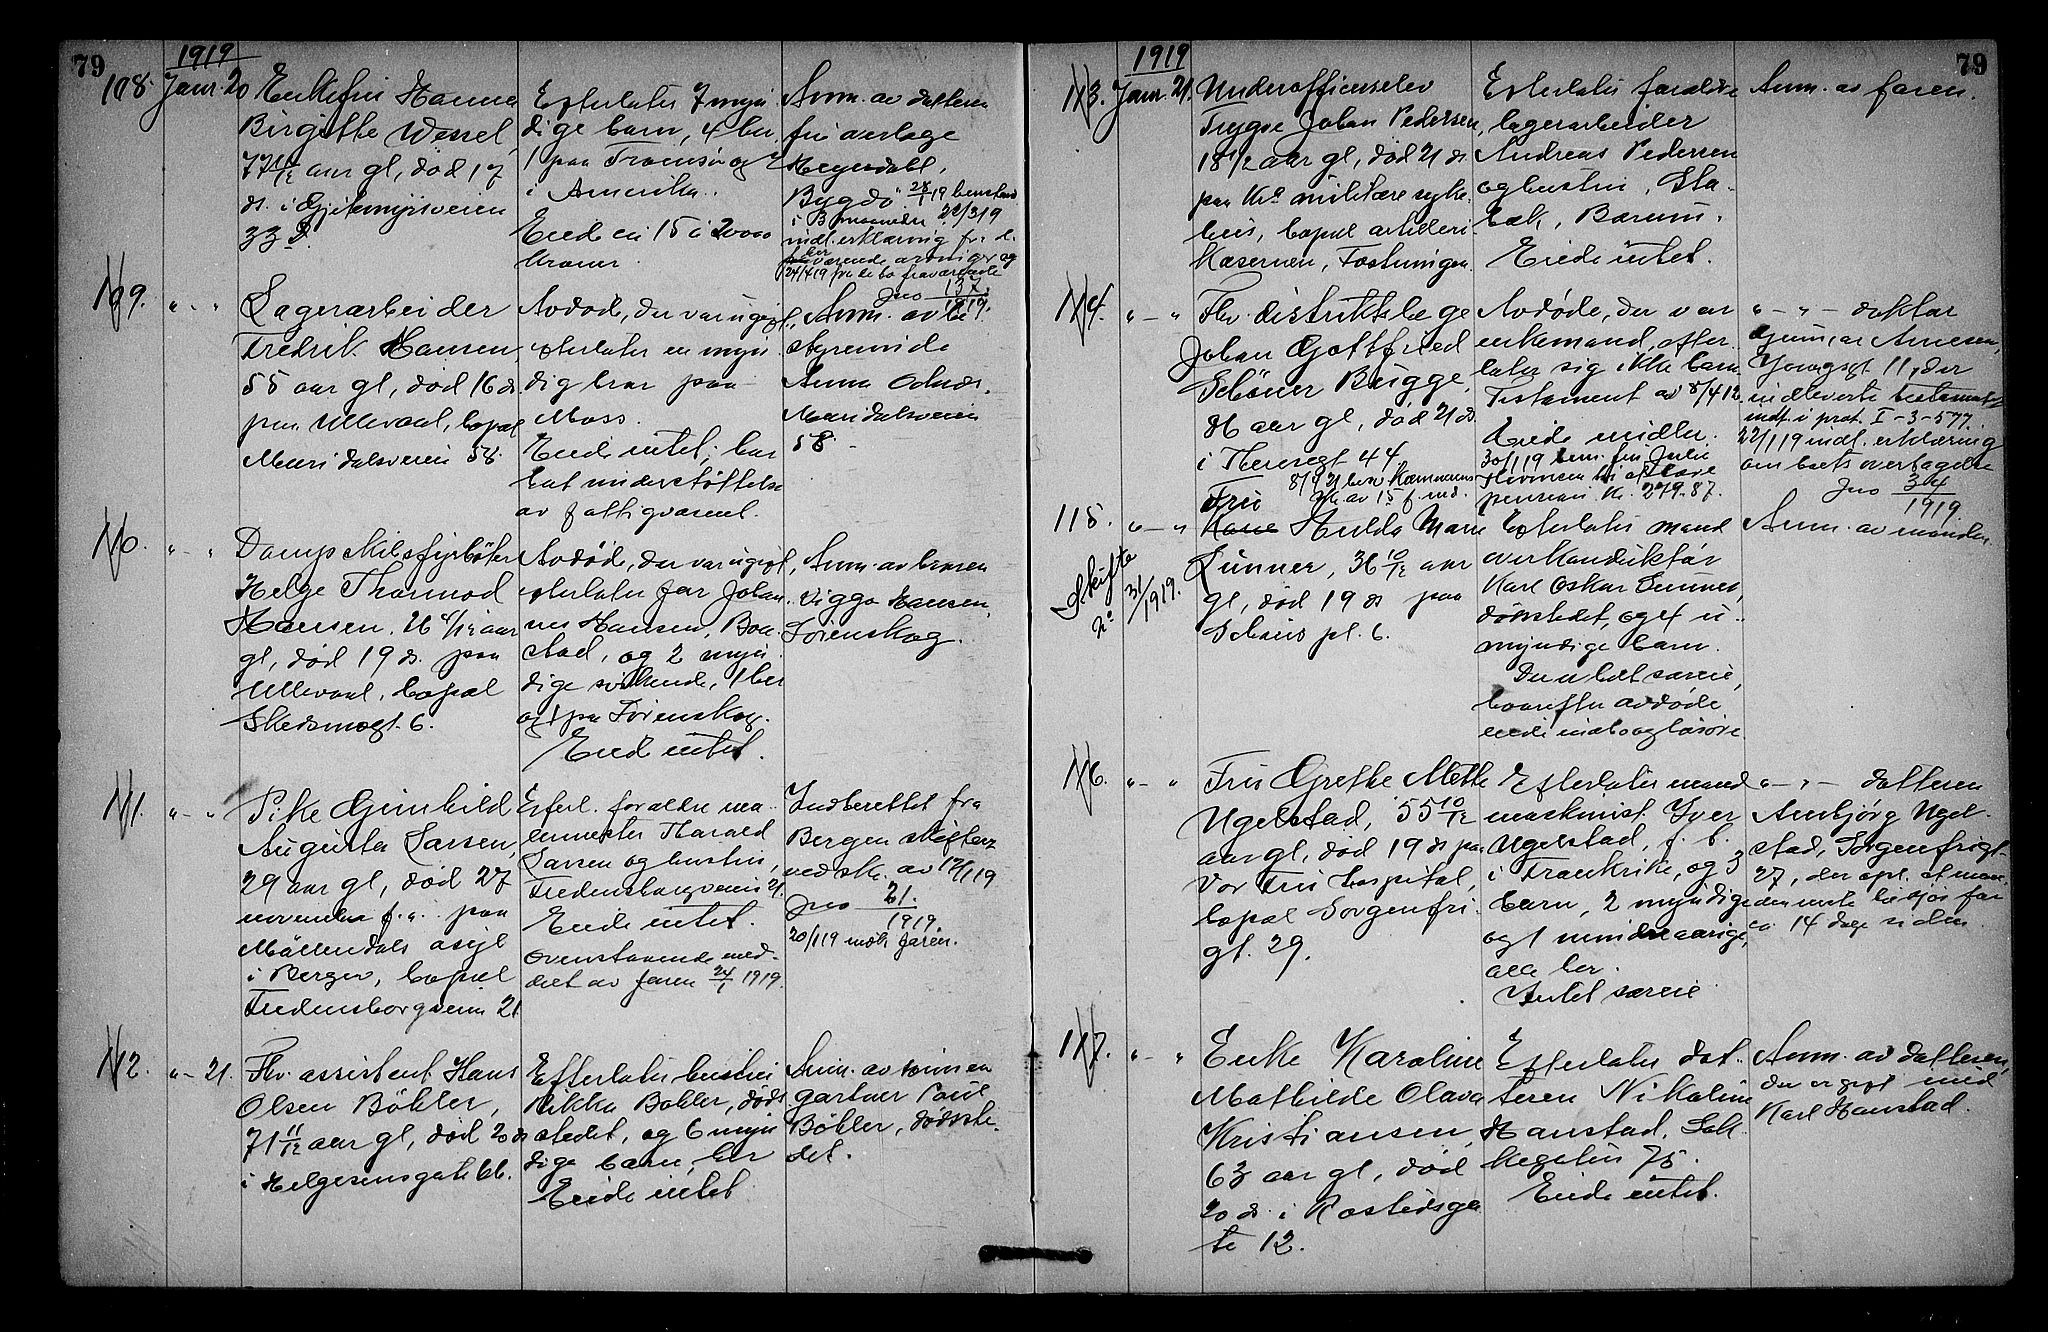 79
1919
108. Janr. 20
Enkefru Hanna
Birgitte Wessel,
77 11/12 aar gl, død 17
ds. i Gjetemyrsveien
33 d.
Efterlater 7 myn
dige barn, 4 her,
1 paa Tromsø og 2
i Amerika.
Eiede ca 15 à 20000
kroner.
Anm. av datteren
fru overlæge
Heyerdahl,
Bygdø.
indl. erklæring fr. d.
værende arvinger og
Jno 137
1919.
109. " - "
Lagerarbeider
Fredrik Hansen,
55 aar gl, død 16 ds.
paa Ullevaal, bopæl
Maridalsveien 58.
Avdøde, der var ugift,
efterlater en myn
dig bror paa
Moss.
Eiede intet; har
hat understøttelse
av fattigvæsenet.
Anm. av be
styrerinde
Anna
Maridalsveien
58.
110. " - "
Dampskibsfyrbøter
Helge Thormod
Hansen, 26 aar
gl, død 19 ds. paa
Ullevaal, bopæl
Skedsmogt. 6.
Avdøde, der var ugift,
efterlater far Johan
nes Hansen, Bøn
stad, og 2 myn
dige søskende, 1 her
og 1 paa Lørenskog.
Eiede intet.
Anm. av broren
Viggo Hansen,
Lørenskog.
111. " - "
Pike Gunhild
Augusta Larsen,
29 aar gl, død 27
november f.a. paa
Møllendals asyl
i Bergen, bopæl
Fredensborgveien 21
Efterl. forældre ma-
lermester Harald
Larsen og hustru,
Fredensborgveien 21.
Eiede intet.
Ovenstaaende med-
delt av faren 24/1 1919.
Indberettet fra
Bergen skifteret
ved skr. av 17/1 19
Jno 21.
1919.
20/1 19 møtte faren.
112. " - 21.
Fhv. assistent Hans
Olsen Bøhler,
71 11/12 aar gl, død 20 ds
i Helgesensgate 66.
Efterlater hustru
Rikka Bøhler, døds
stedet, og 6 myn
dige barn, her
Eiede intet
Anm. av sønnen
gartner Paul
Bøhler, dødsste-
det.
79
1919
113. Janr. 21.
Underofficerselev
Trygve Johan Pedersen,
18 1/2 aar gl, død 21 ds.
paa Ka militære syke-
hus, bopæl artilleri
kasernen, Fæstningen.
Efterlater forældre
lagerarbeider
Andreas Pedersen
og hustru, Sta-
bæk, Bærum.
Eiede intet.
Anm. av faren.
114. " - "
Fhv. distriktslæge
Johan Gottfried
Schöner Bugge,
aar gl, død 21 ds.
i Theresgt 44
Avdøde, der var
enkemand, efter
later sig ikke barn.
Testament av 8/4 12.
Eiede midler.
pension kr. 279.87.
" - " - doktor
Gunnar Arnesen,
11, der
indleverte testamentet
indf. i prot. I-3-577.
22/1 19 indl. erklæring
om boets overtagelse
Jno 34
1919
115. " - "
Skifte
No 31/1919.
Fru
Kone Hulda Marie
Lunner, 36 10/12 aar
gl, død 19 ds paa
Schous pl. 6.
Efterlater mand
overkonduktør
Karl Oskar Lunner,
dødsstedet, og 4 u-
myndige barn.
Der er helt særeie,
hvorefter avdøde
eiede indbo og løsøre.
Anm. av manden.
116. " - "
Fru Grethe Mette
Ugelstad, 55 10/12
aar gl, død 19 ds paa
Vor Frue hospital,
bopæl Sorgenfri-
gt. 29.
Efterlater mand
maskinist Iver
Ugelstad, f. t.
i Frankrike, og 3
barn, 2 myndige
og 1 mindreaarige,
alle her.
Intet særeie
" - " - datteren
Annbjørg Ugel-
stad, Sorgenfrigt-
27, der opl. at man-
den reiste tilsjøs for
ca. 14 dage siden
117. " - "
Enke Karoline
Mathilde Olava
Kristiansen,
63 aar gl, død
20 ds. i Røstedsga
te 12.
Efterlater dat-
teren Nikoline
Hanstad, Søl-
75.
Eiede intet.
Anm. av datteren,
der er gift med
Karl Hanstad.